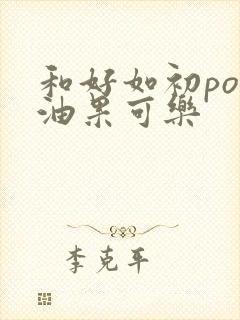 和好如初po
油果可樂
李克平